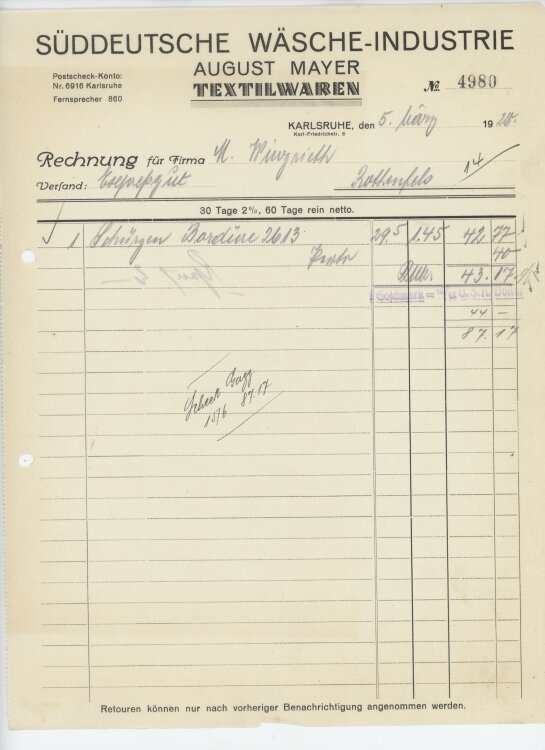 SÜDDEUTSCHE WÄSCHE-INDUSTRIE
AUGUST MAYER
TEXTILWAREN
Postscheck-Konto:
Nr. 6916 Karlsruhe
Fernsprecher 860
№ 4980
KARLSRUHE, den 5. März 1928.
Karl-Friedrichstr. 6
Rechnung für Firma M.
14/
Versand: Rottenfels
30 Tage 2%, 60 Tage rein netto.
1 Schürzen Bordüre 2613 29.5 1.45 42 77
Porto 40
43.17
44 —
87.17
Scheck
15/6 87.17
Retouren können nur nach vorheriger Benachrichtigung angenommen werden.